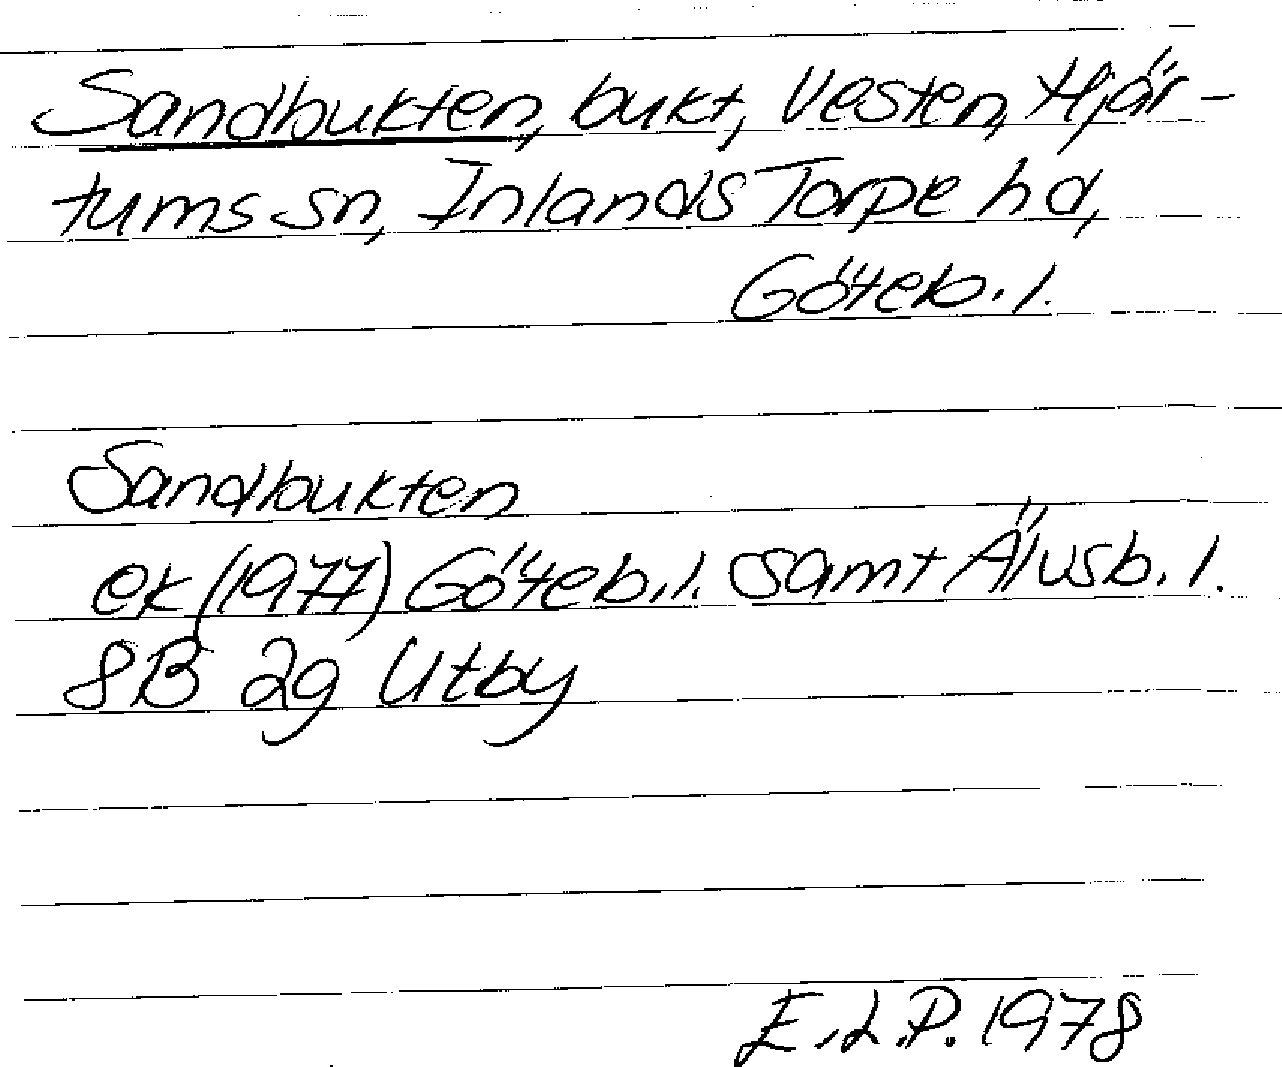 Sandbukten, bukt, Vesten, Hjär-
tums sn, Inlands Torpe hd,
Göteb. l.
Sandbukten
ek (1977) Göteb. l. samt Älvsb. l.
8B 2g Utby
E.L.P. 1978